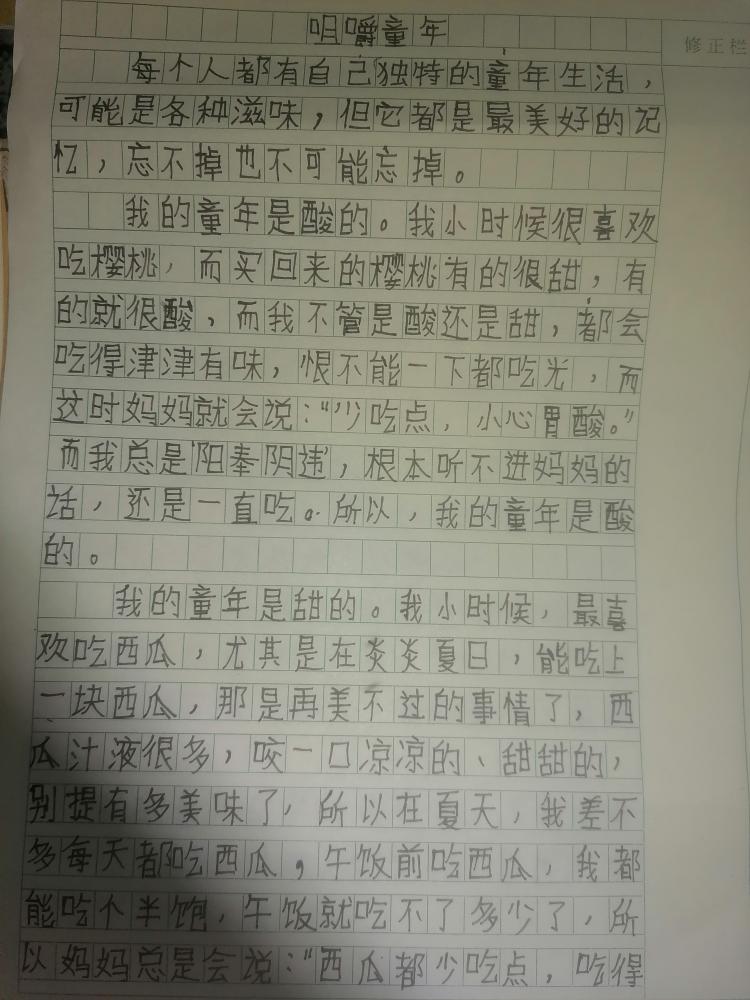 咀嚼童年
修正栏
每个人都有自己独特的童年生活，
可能是各种滋味，但它都是最美好的记
忆，忘不掉也不可能忘掉。
我的童年是酸的。我小时候很喜欢
吃樱桃，而买回来的樱桃有的很甜，有
的就很酸，而我不管是酸还是甜，都会
吃得津津有味，恨不能一下都吃光，而
这时妈妈就会说：“少吃点，小心胃酸。”
而我总是‘阳奉阴违’，根本听不进妈妈的
话，还是一直吃。所以，我的童年是酸
的。
我的童年是甜的。我小时候，最喜
欢吃西瓜，尤其是在炎炎夏日，能吃上
一块西瓜，那是再美不过的事情了，西
瓜汁液很多，咬一口凉凉的、甜甜的，
别提有多美味了，所以在夏天，我差不
多每天都吃西瓜，午饭前吃西瓜，我都
能吃个半饱，午饭就吃不了多少了，所
以妈妈总是会说：“西瓜都少吃点，吃得